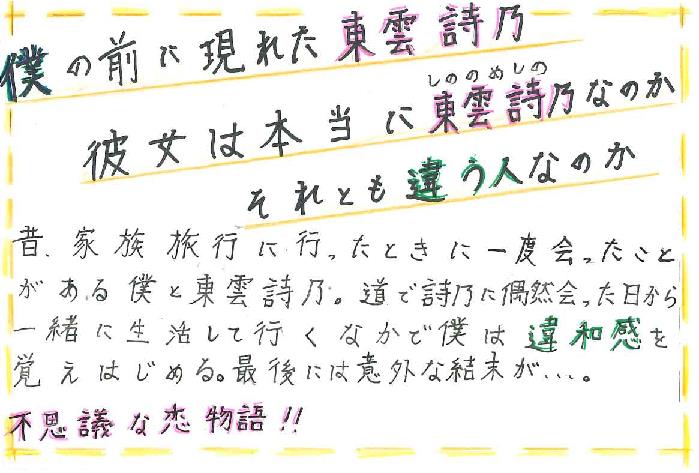 僕の前に現れた東雲詩乃
しののめしの
彼女は本当に東雲詩乃なのか
それとも違う人なのか
昔、家族旅行に行ったときに一度会ったこと
がある僕と東雲詩乃。道で詩乃に偶然会った日から
一緒に生活して行くなかで僕は違和感を
覚えはじめる。最後には意外な結末が…。
不思議な恋物語!!